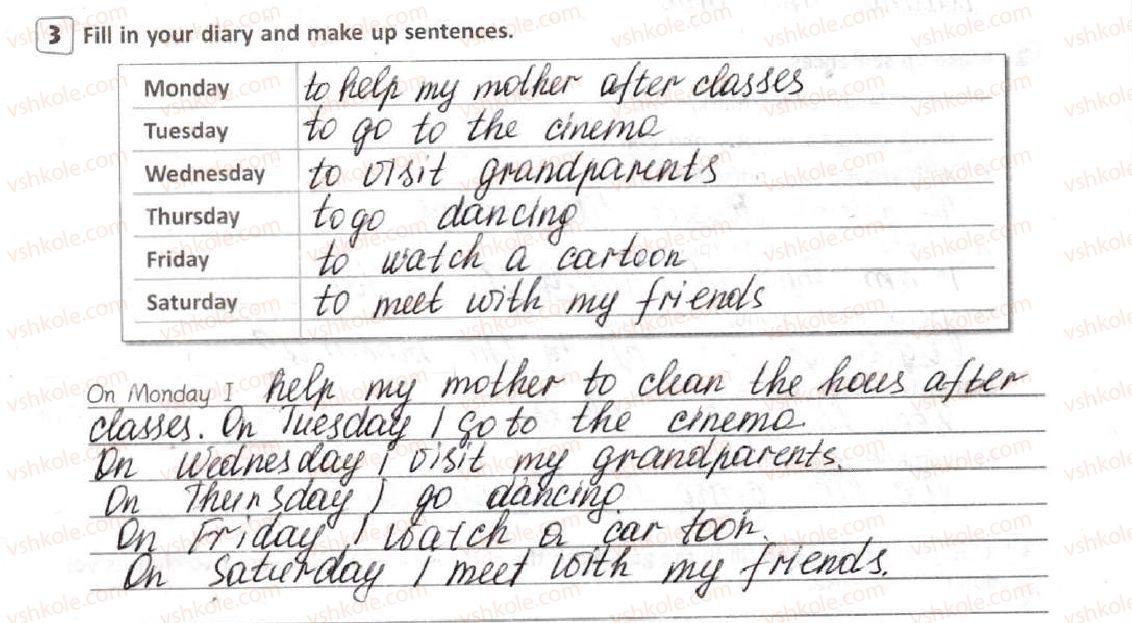 3 Fill in your diary and make up sentences.
Monday to help my mother after classes
Tuesday to go to the cinema
Wednesday to visit grandparents
Thursday to go dancing
Friday to watch a cartoon
Saturday to meet with my friends
On Monday I help my mother to clean the hous after
classes. On Tuesday I go to the cinema.
On Wednesday I visit my grandparents.
On Thursday I go dancing.
On Friday I watch a car toon.
On Saturday I meet with my friends.
vshkole.com